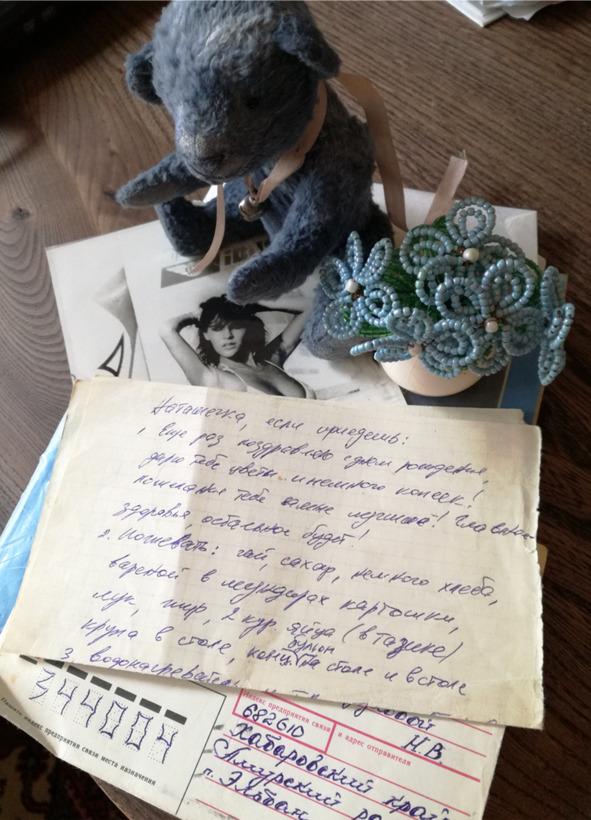 Наташечка, если приедешь:
1. Еще раз поздравляю с днем рождения,
дарю тебе цветы и немного копеек!
пожелания тебе самые лучшие! Главное
здоровья остальное будет!
2. Пожевать: чай, сахар, немного хлеба,
вареной в мундирах картошки,
лук, жир, 2 кур. яйца (в тазике)
бульон
крупа в столе, конц. на столе и в столе
3. водонагреватель
344004
Индекс предприятия связи места назначения
Индекс предприятия связи
и адрес отправителя
682610
Н.В.
Хабаровский край
Амурский
п. Эльбан